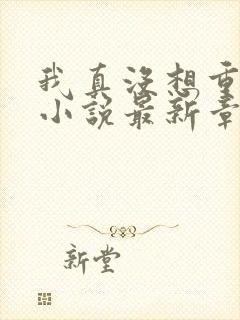 我真没想重
小说最新章
新堂